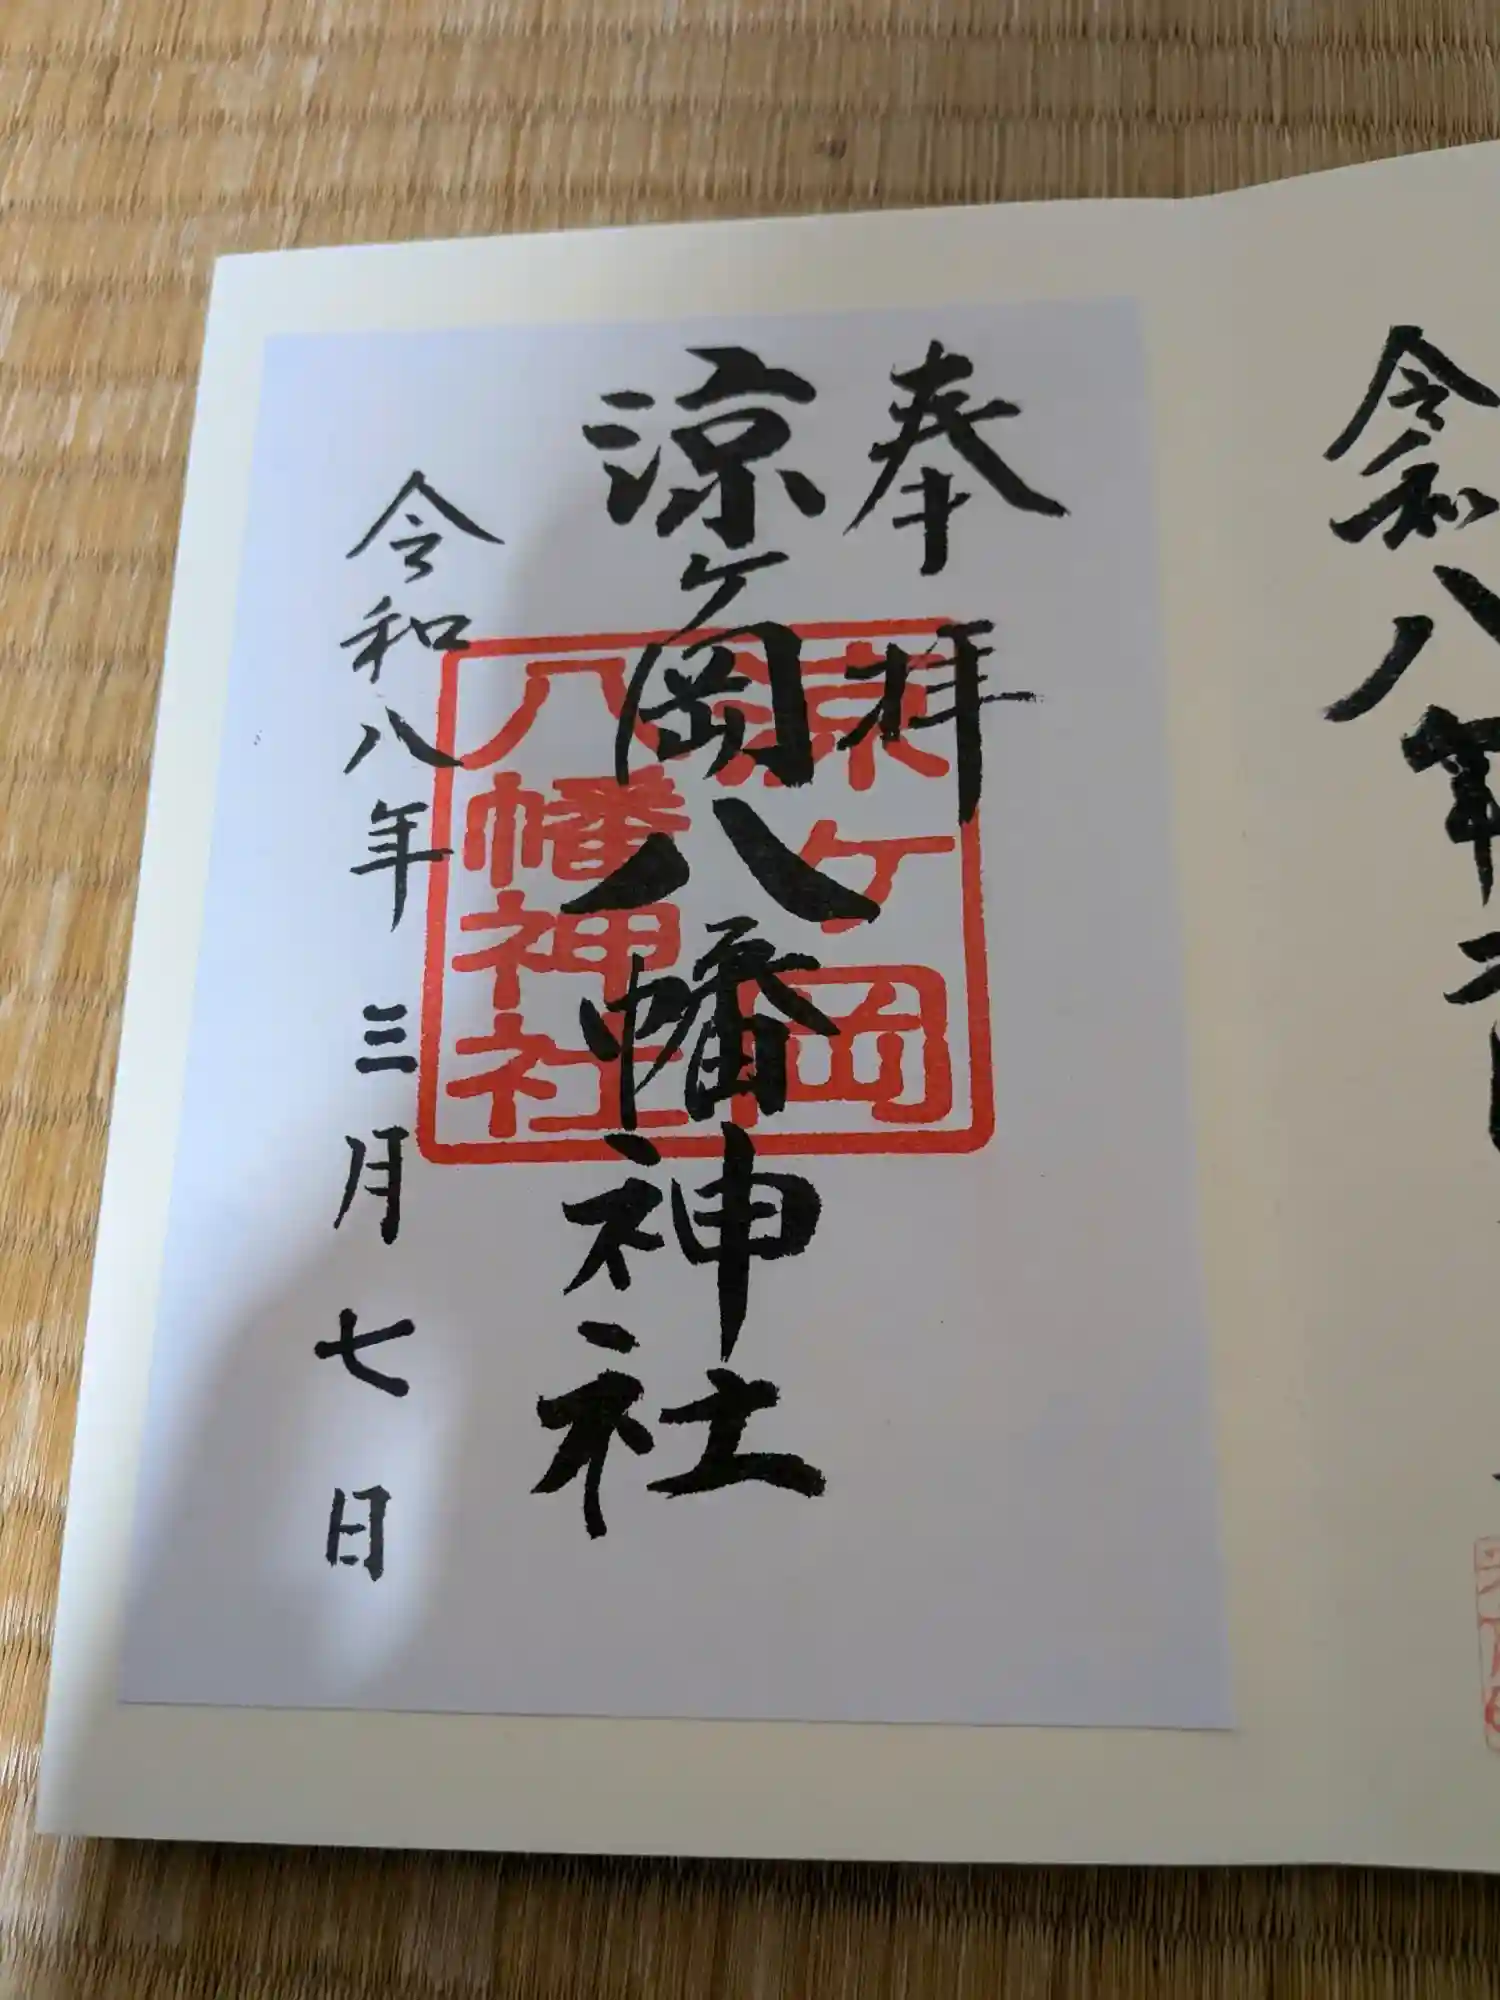 令和八年
奉拝
涼ヶ岡八幡神社
涼ヶ岡
八幡神社
令和八年 三月七日